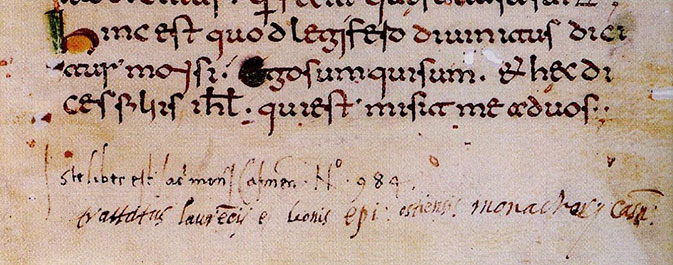 hinc est quod legifero divinitus dici
tur moysi. Ego sum qui sum. Et hec di
ces filiis ihl. qui est misit me ad vos.
Iste liber est sac mon Casinen. N° 984
laurecij et leonis epi. ostiensis monachor casin: